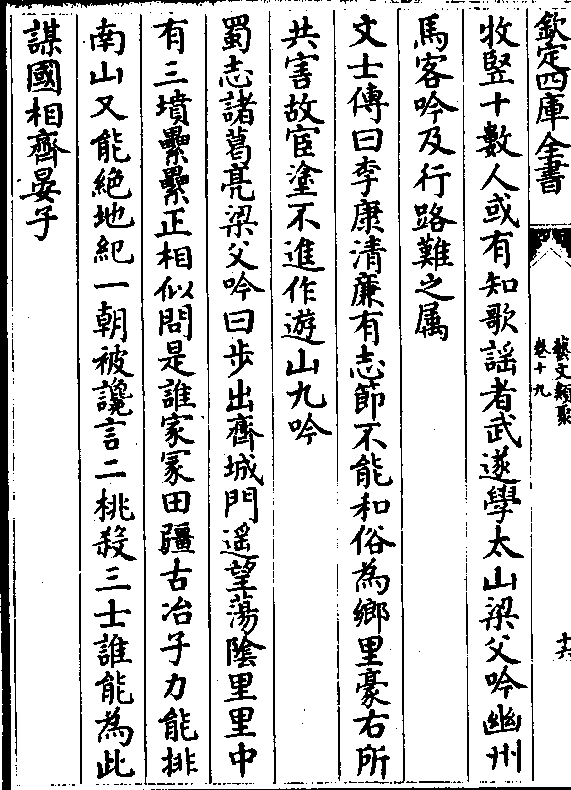 欽定四庫全書
藝文類聚
卷十九
十六
收豎十數人或有知歌謠者武遂學太山梁父吟幽州
馬客吟及行路難之属
文士傳曰李康清廉有志節不能和俗為鄉里豪右所
共害故宦塗不進作遊山九吟
蜀志諸葛亮梁父吟曰步出齊城門遥望蕩隂里里中
有三墳纍纍正相似問是誰家冢田疆古冶子力能排
南山又能絶地紀一朝被讒言二桃殺三士誰能為此
謀國相齊晏子